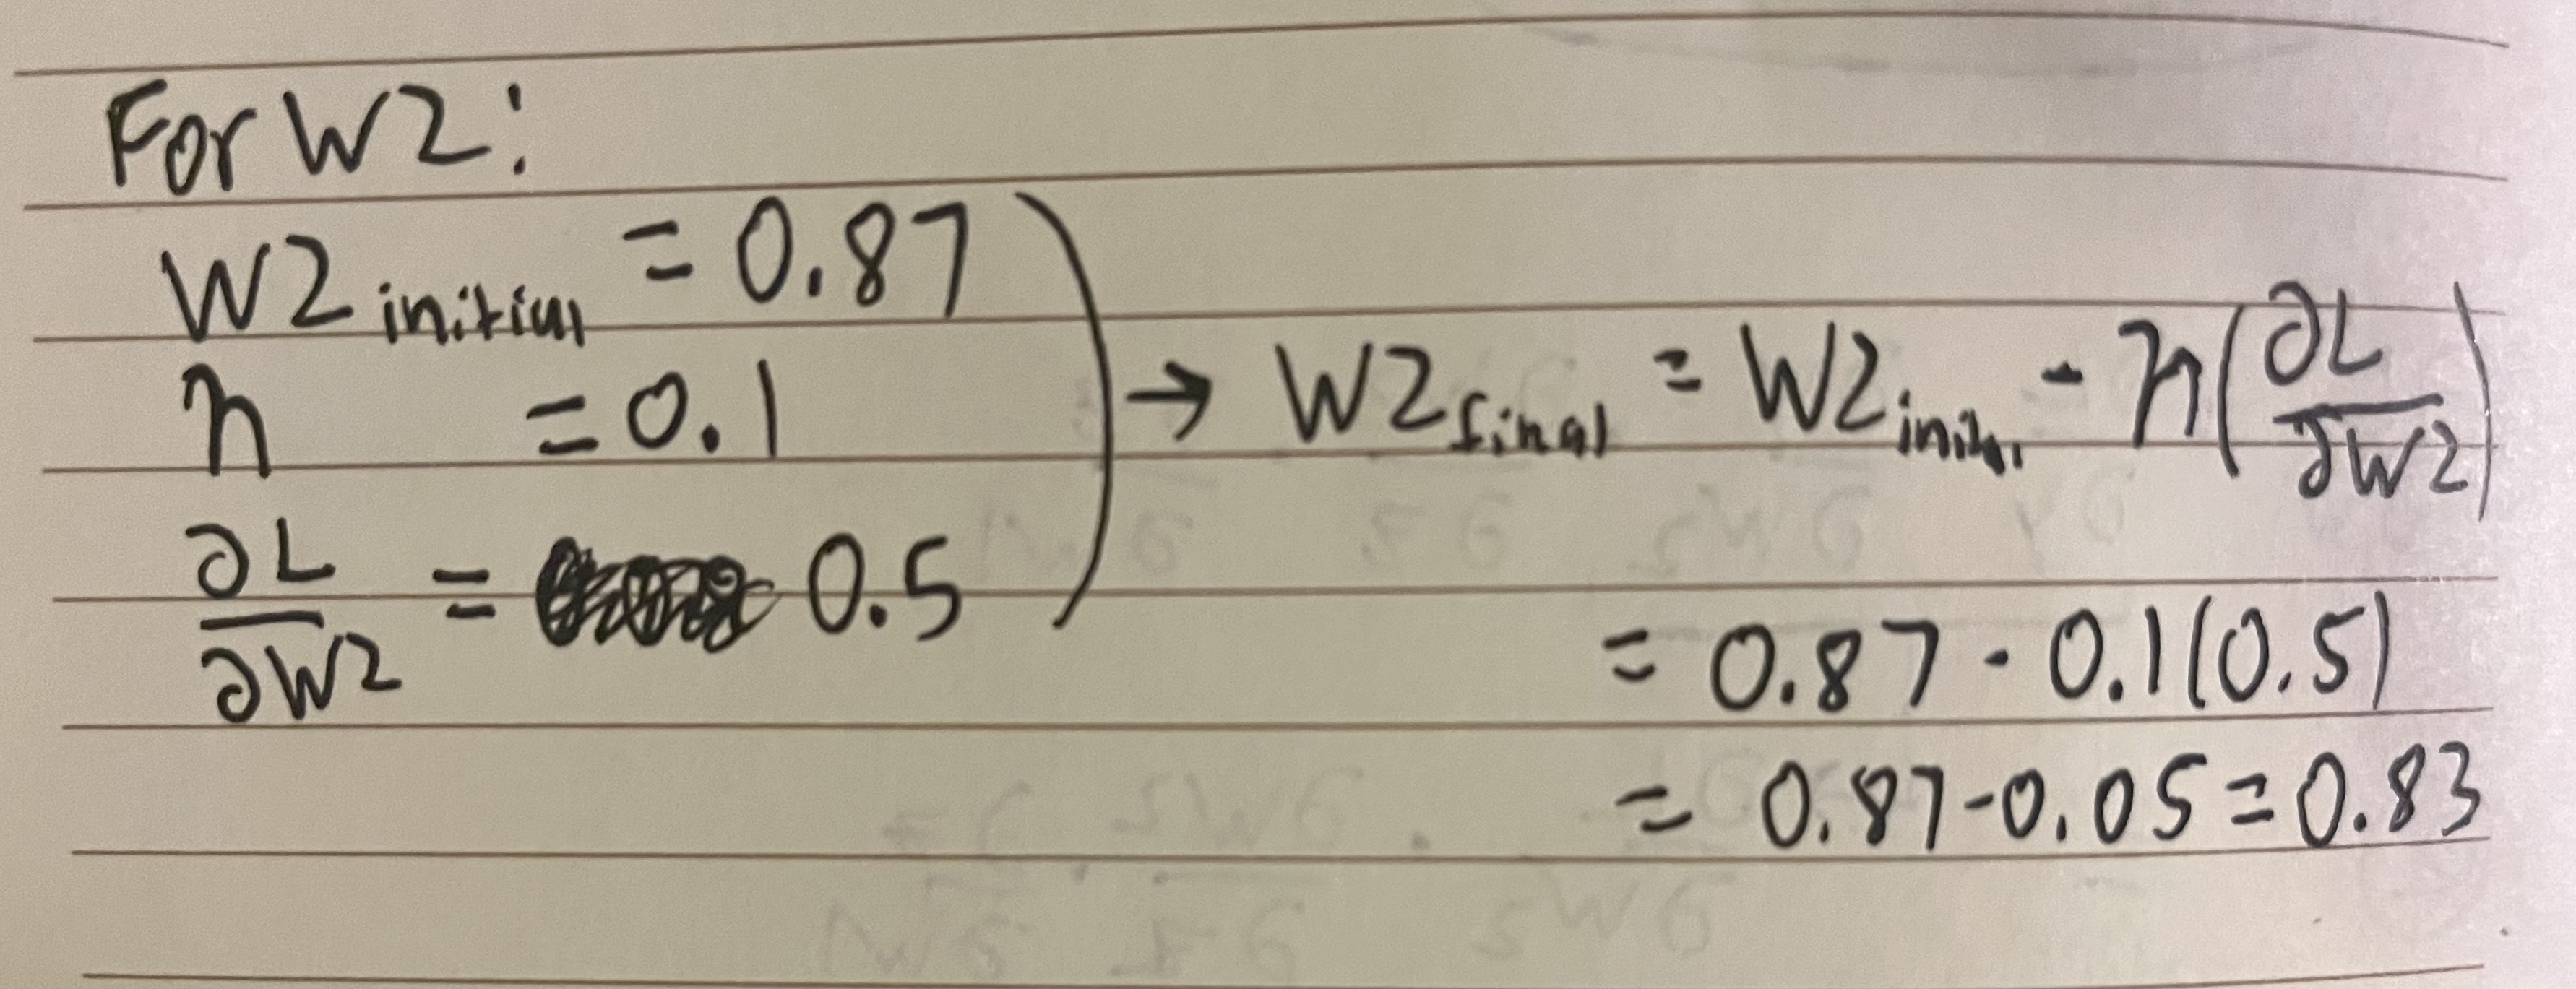 For W2:
W2 initial = 0.87
η = 0.1
∂L/∂W2 = 0.5
→ W2 final = W2 initi. - η(∂L/∂W2)
= 0.87 - 0.1(0.5)
= 0.87-0.05=0.83